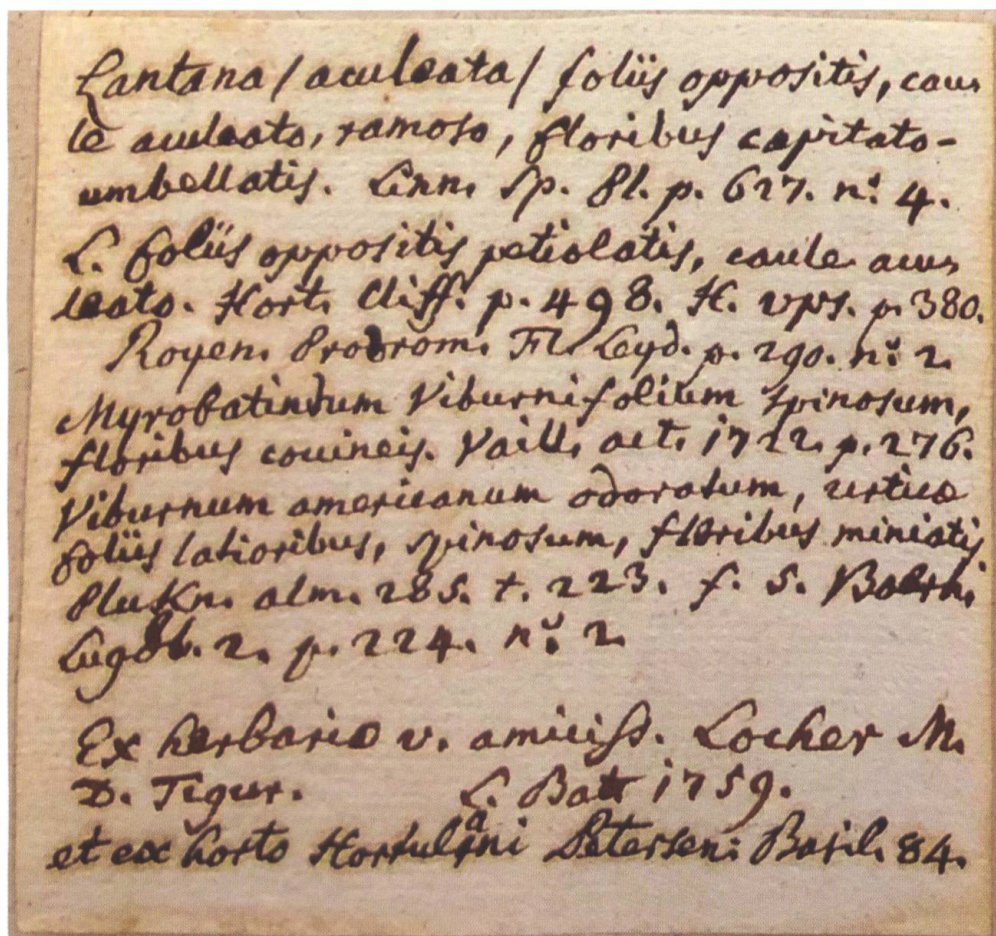 Lantana / aculeata / foliis oppositis, cau-
le aculeato, ramoso, floribus capitato-
umbellatis. Linn. Sp. Pl. p. 627. n.º 4.
L. foliis oppositis petiolatis, caule acu-
leato. Hort. Cliff. p. 498. H. ups. p. 380.
Royen. Prodrom. Fl. Leyd. p. 290. n.º 2.
Myrobatindum Viburnifolium spinosum,
floribus coccineis. Vaill. act. 1722. p. 276.
Viburnum americanum odoratum, urticæ
foliis latioribus, spinosum, floribus miniatis
Plukn. alm. 285. t. 223. f. 5. Boerh.
Lugdb. 2. p. 224. n.º 2.
Ex herbario v. amiciss. Locher M.
D. Tigur. 1759.
et ex horto Hortulani Petersen: Basil. 84.